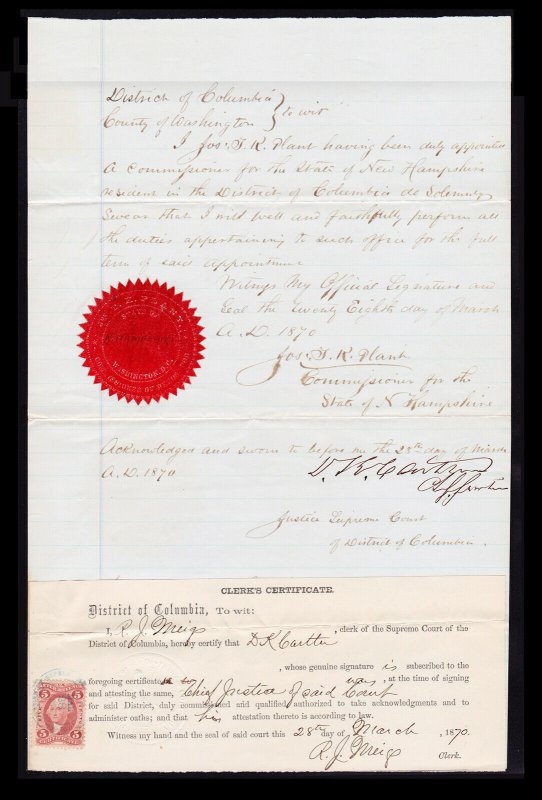 District of Columbia
County of Washington } to wit
I Jos: T. K. Plant having been duly appointed
a Commissioner for the State of New Hampshire
resident in the District of Columbia do Solemnly
Swear that I will well and faithfully perform all
the duties appertaining to such office for the full
term of said appointment
Witness My Official Signature and
Seal the twenty Eighth day of March
A. D. 1870
Jos: T. K. Plant
Commissioner for the
State of N Hampshire
WASHINGTON, D.C.
Acknowledged and sworn to before me the 28th day of March
A. D. 1870
D. K. Cartter
Justice Supreme Court
of District of Columbia.
CLERK'S CERTIFICATE.
District of Columbia, To wit:
I, R. J. Meigs, clerk of the Supreme Court of the
District of Columbia, hereby certify that D K Cartter
, whose genuine signature is subscribed to the
foregoing certificate, was, at the time of signing
and attesting the same, Chief Justice of said Court
for said District, duly commissioned and qualified and authorized to take acknowledgments and to
administer oaths; and that his attestation thereto is according to law.
Witness my hand and the seal of said court this 28th day of March, 1870.
R. J. Meigs Clerk.
5 5